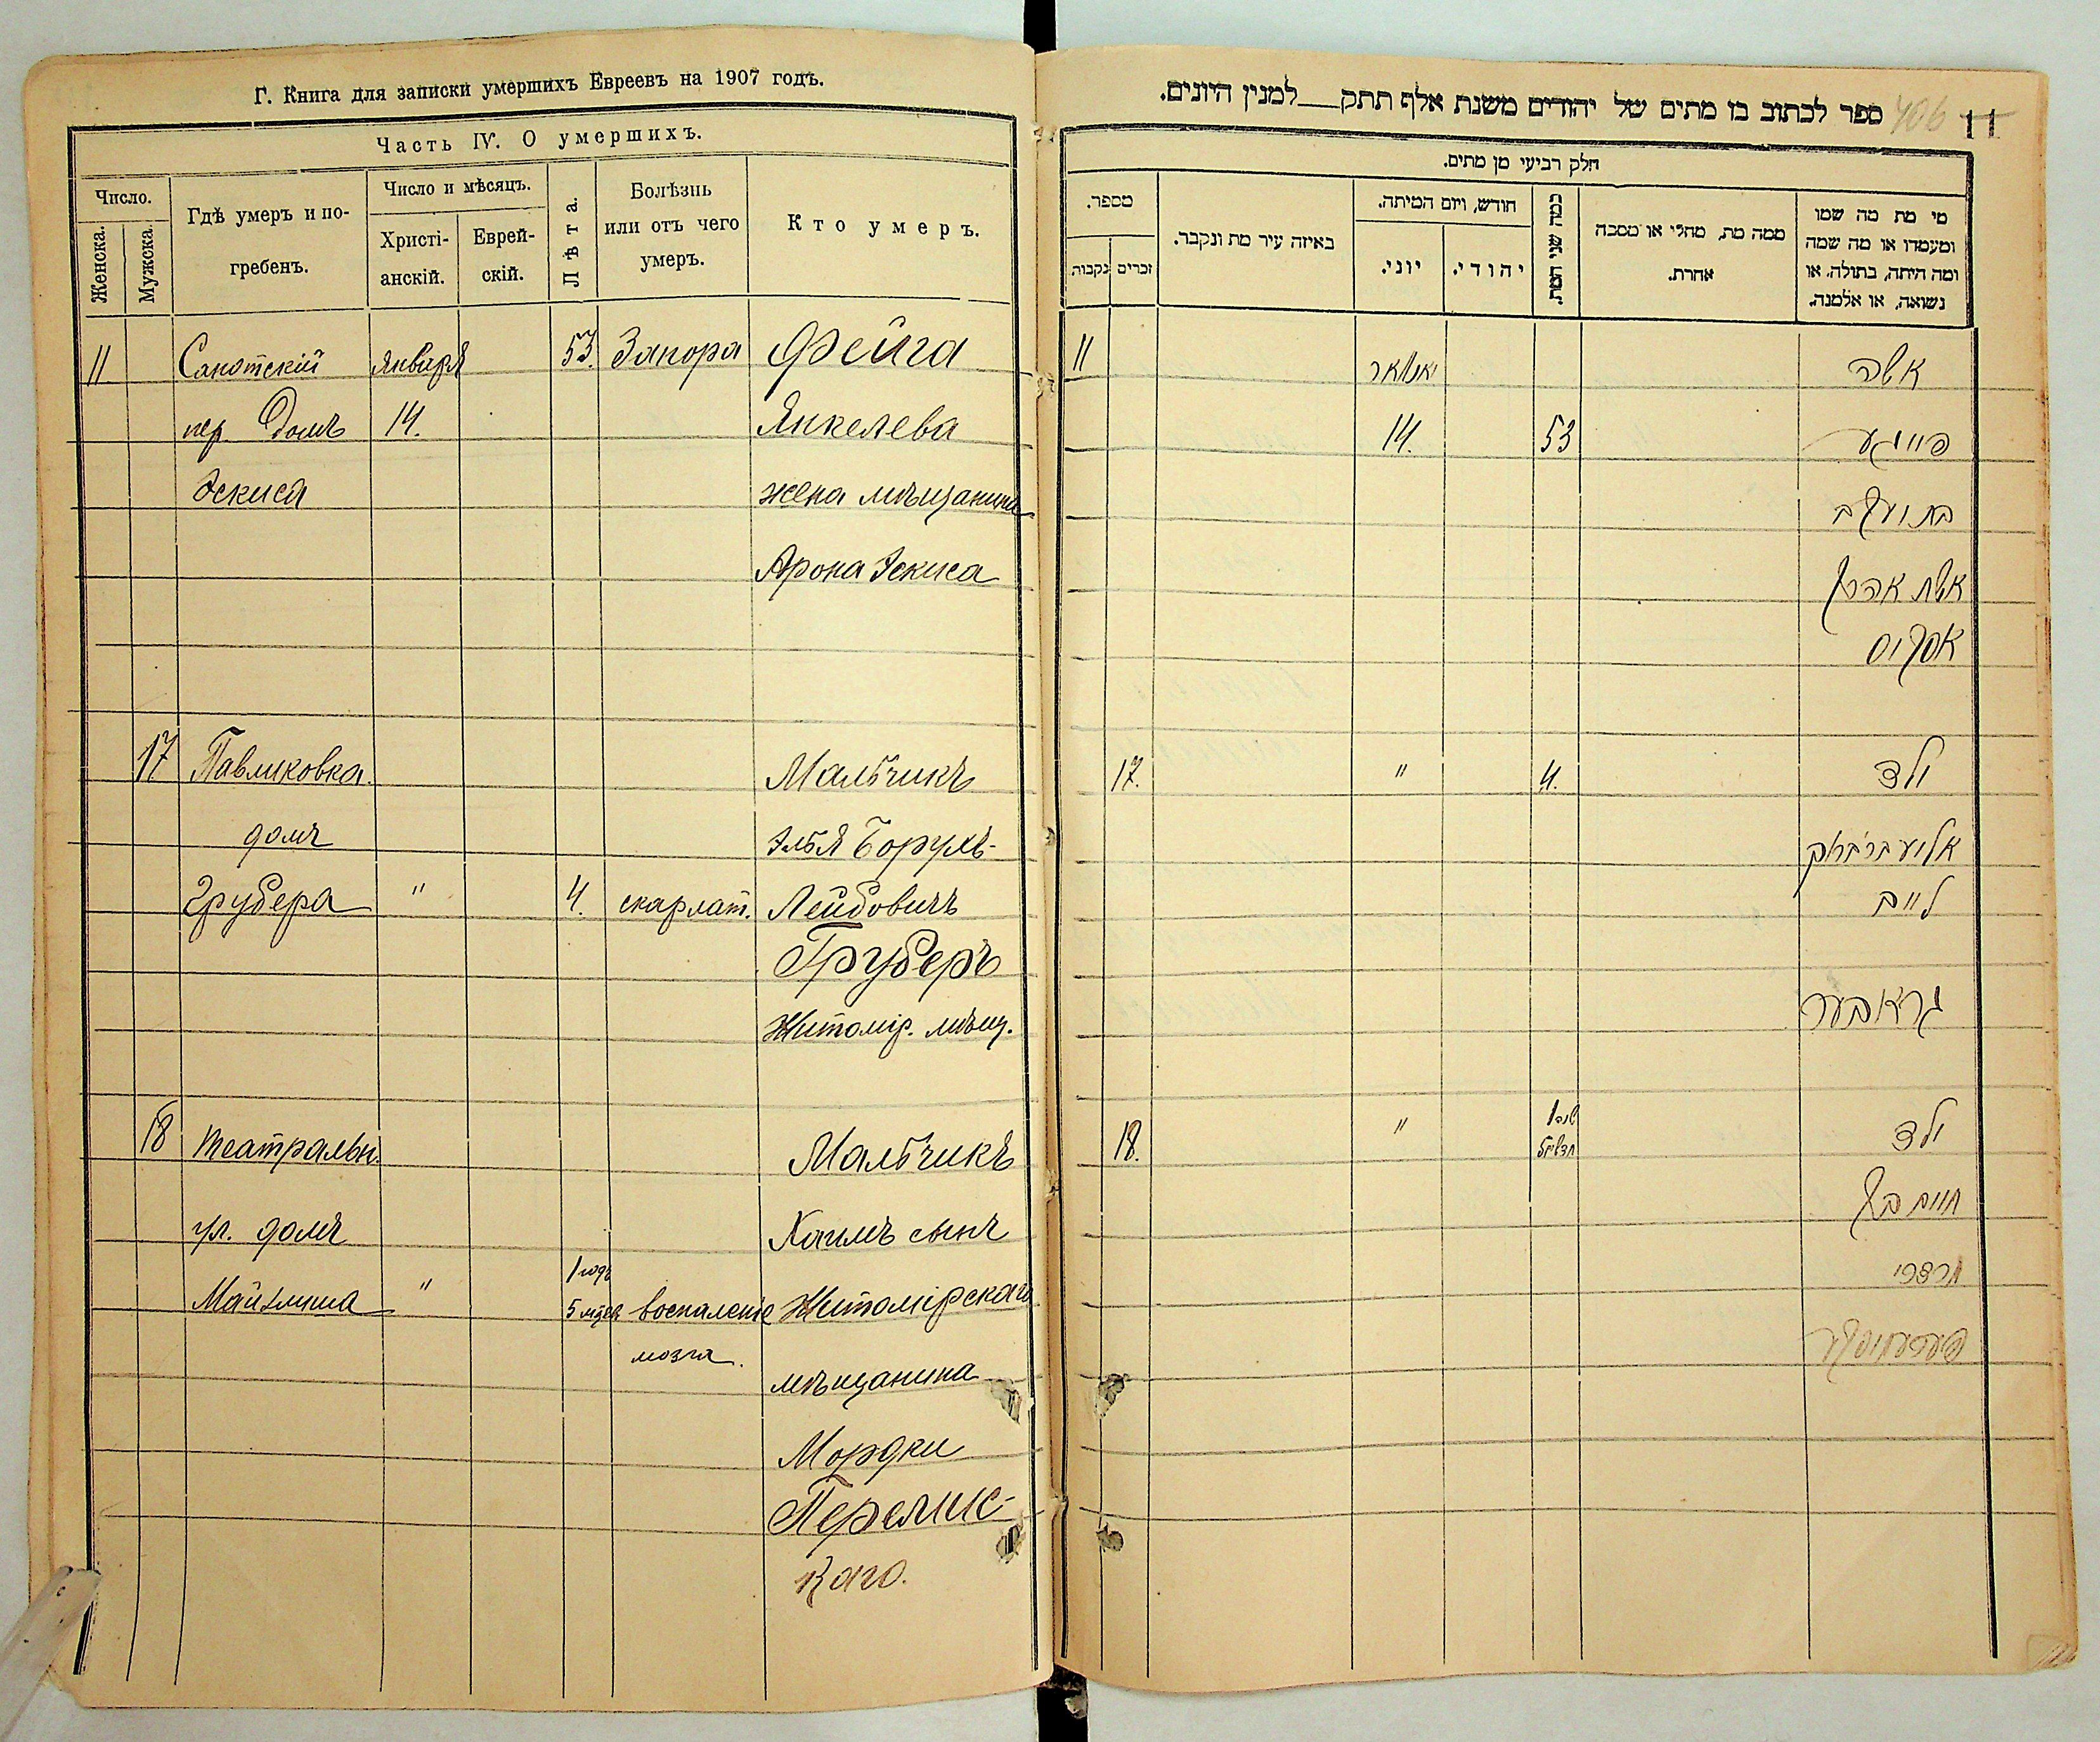 Г. Книга для записки умершихъ Евреевъ на 1907 годъ.
Часть IV. О умершихъ.
Число.
Женска.
Мужска.
Гдѣ умеръ и по-
гребенъ.
Число и мѣсяцъ.
Христі-
анскій.
Еврей-
скій.
Лѣта.
Болѣзнь
или отъ чего
умеръ.
Кто умеръ.
11 Января 53. Запора Фейга
пер. Домъ 14. Янкелева
Эскиса жена мѣщанина
Арона Эскиса
17 Павликовка. Мальчикъ
домъ Элья Борухъ-
Грубера " 4. скарлат. Лейбовичъ
Груберъ
Житомір. мѣщ.
18 Театральн. Мальчикъ
ул. домъ Хаимъ сынъ
1 годъ
" 5 мѣс. воспаленіе Житомірскаго
мозга.
мѣщанина
Мордки
Перелис-
каго.
406 11
ספר לכתוב בו מתים של יהודים משנת אלף תתק__למנין היונים.
חלק רביעי מן מתים.
מספר.
נקבות
זכרים
באיזה עיר מת ונקבר.
חודש, ויום המיתה.
יוני.
יהודי.
כמה שני המת.
ממה מת, מחלי או מסבה
אחרת.
מי מת מה שמו
ומעמדו או מה שמה
ומה היתה, בתולה, או
נשואה, או אלמנה.
11 יאנואר אשה
14. 53 פייגע
בת יעקב
אשת אהרן
אסקיס
17. " 4. ילד
לייב
גרובער
18. " 1 ילד
חיים בן
מרדכי